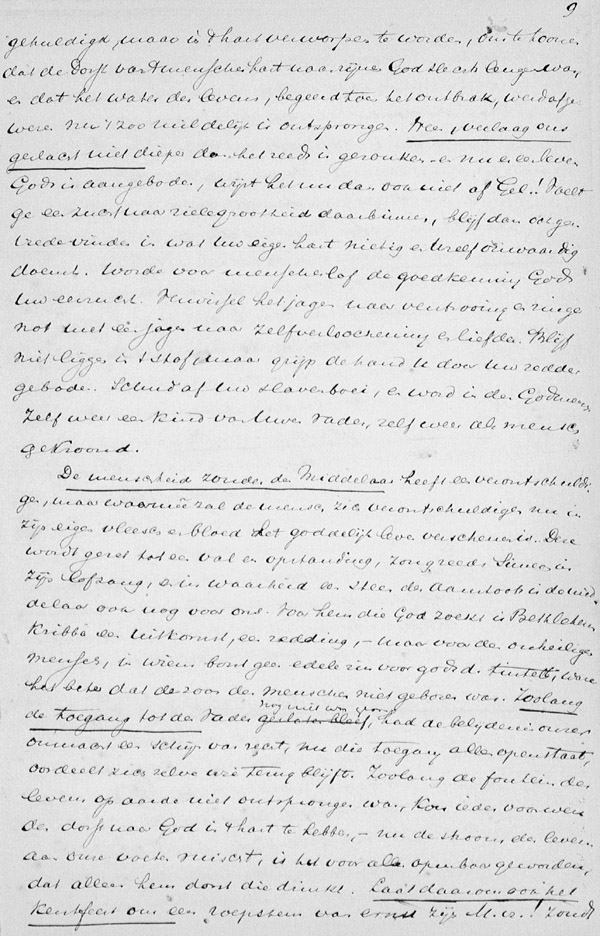 9
gehuldigd, maar in 't hart verworpen te worden, om te toonen
dat de dorst van 't menschenhart naar zijnen God slechts leugen was,
en dat het water des levens, begeerd toen het ontbrak, werd afge
weren nu 't zoo middelijk is ontsprongen. Neen, verlaag ons
geslacht niet dieper dan het reeds is gezonken en nu u een leven
Gods is aangeboden, wijst het nu dan ook niet af Gel.! Voelt
ge een zucht naar zielegrootheid daarbinnen, blijf dan ook geen
vrede vinden in wat Uw eigen hart nietig en Uzelf onwaardig
doemt. Worde voor menschenlof de goedkeuring Gods
Uw eerzucht. Verwissel het jagen naar vertrooing en zinge
not met een jagen naar zelfverloochening en liefde. Blijf
niet liggen in 't stof, maar grijp de hand U door Uw redder
geboden. Schud af Uw slavenboei, en word in den Godmensch
zelf weer een kind van Uwen Vader, zelf weer als mensch
gekroond.
De menschheid zonder den Middelaar heeft een verontschuldi
ging, maar waarmeê zal de mensch zich verontschuldigen nu in
zijn eigen vleesch en bloed het goddelijk leven verschenen is. Deze
wordt gezet tot een val en opstanding, zong reeds Simeon in
zijn lofzang, en in waarheid een steen des aanstoots is de mid
delaar ook nog voor ons. Voor hem die God zoekt is Bethlehems
kribbe een uitkomst, een redding, – maar voor den onheiligen
mensch, in wiens borst geen edele zin voor God tintelt, ware
het beter dat de zoon des menschen niet geboren was. Zoolang
nog niet was
de toegang tot den Vader gesloten bleef, had de belijdenis onzer
onmacht een schijn van recht, nu die toegang allen openstaat,
oordeelt zich zelve wie terug blijft. Zoolang de fontein des
levens op aarde niet ontsprongen was, kon ieder voorwen
den dorst naar God in 't hart te hebben, – nu de stroom des levens
aan onze voeten ruischt, is het voor allen openbaar geworden,
dat alleen hem dorst die drinkt. Laat daarom ook het
Kerstfeest om een roepstem van ernst zijn M. v.! Zondt